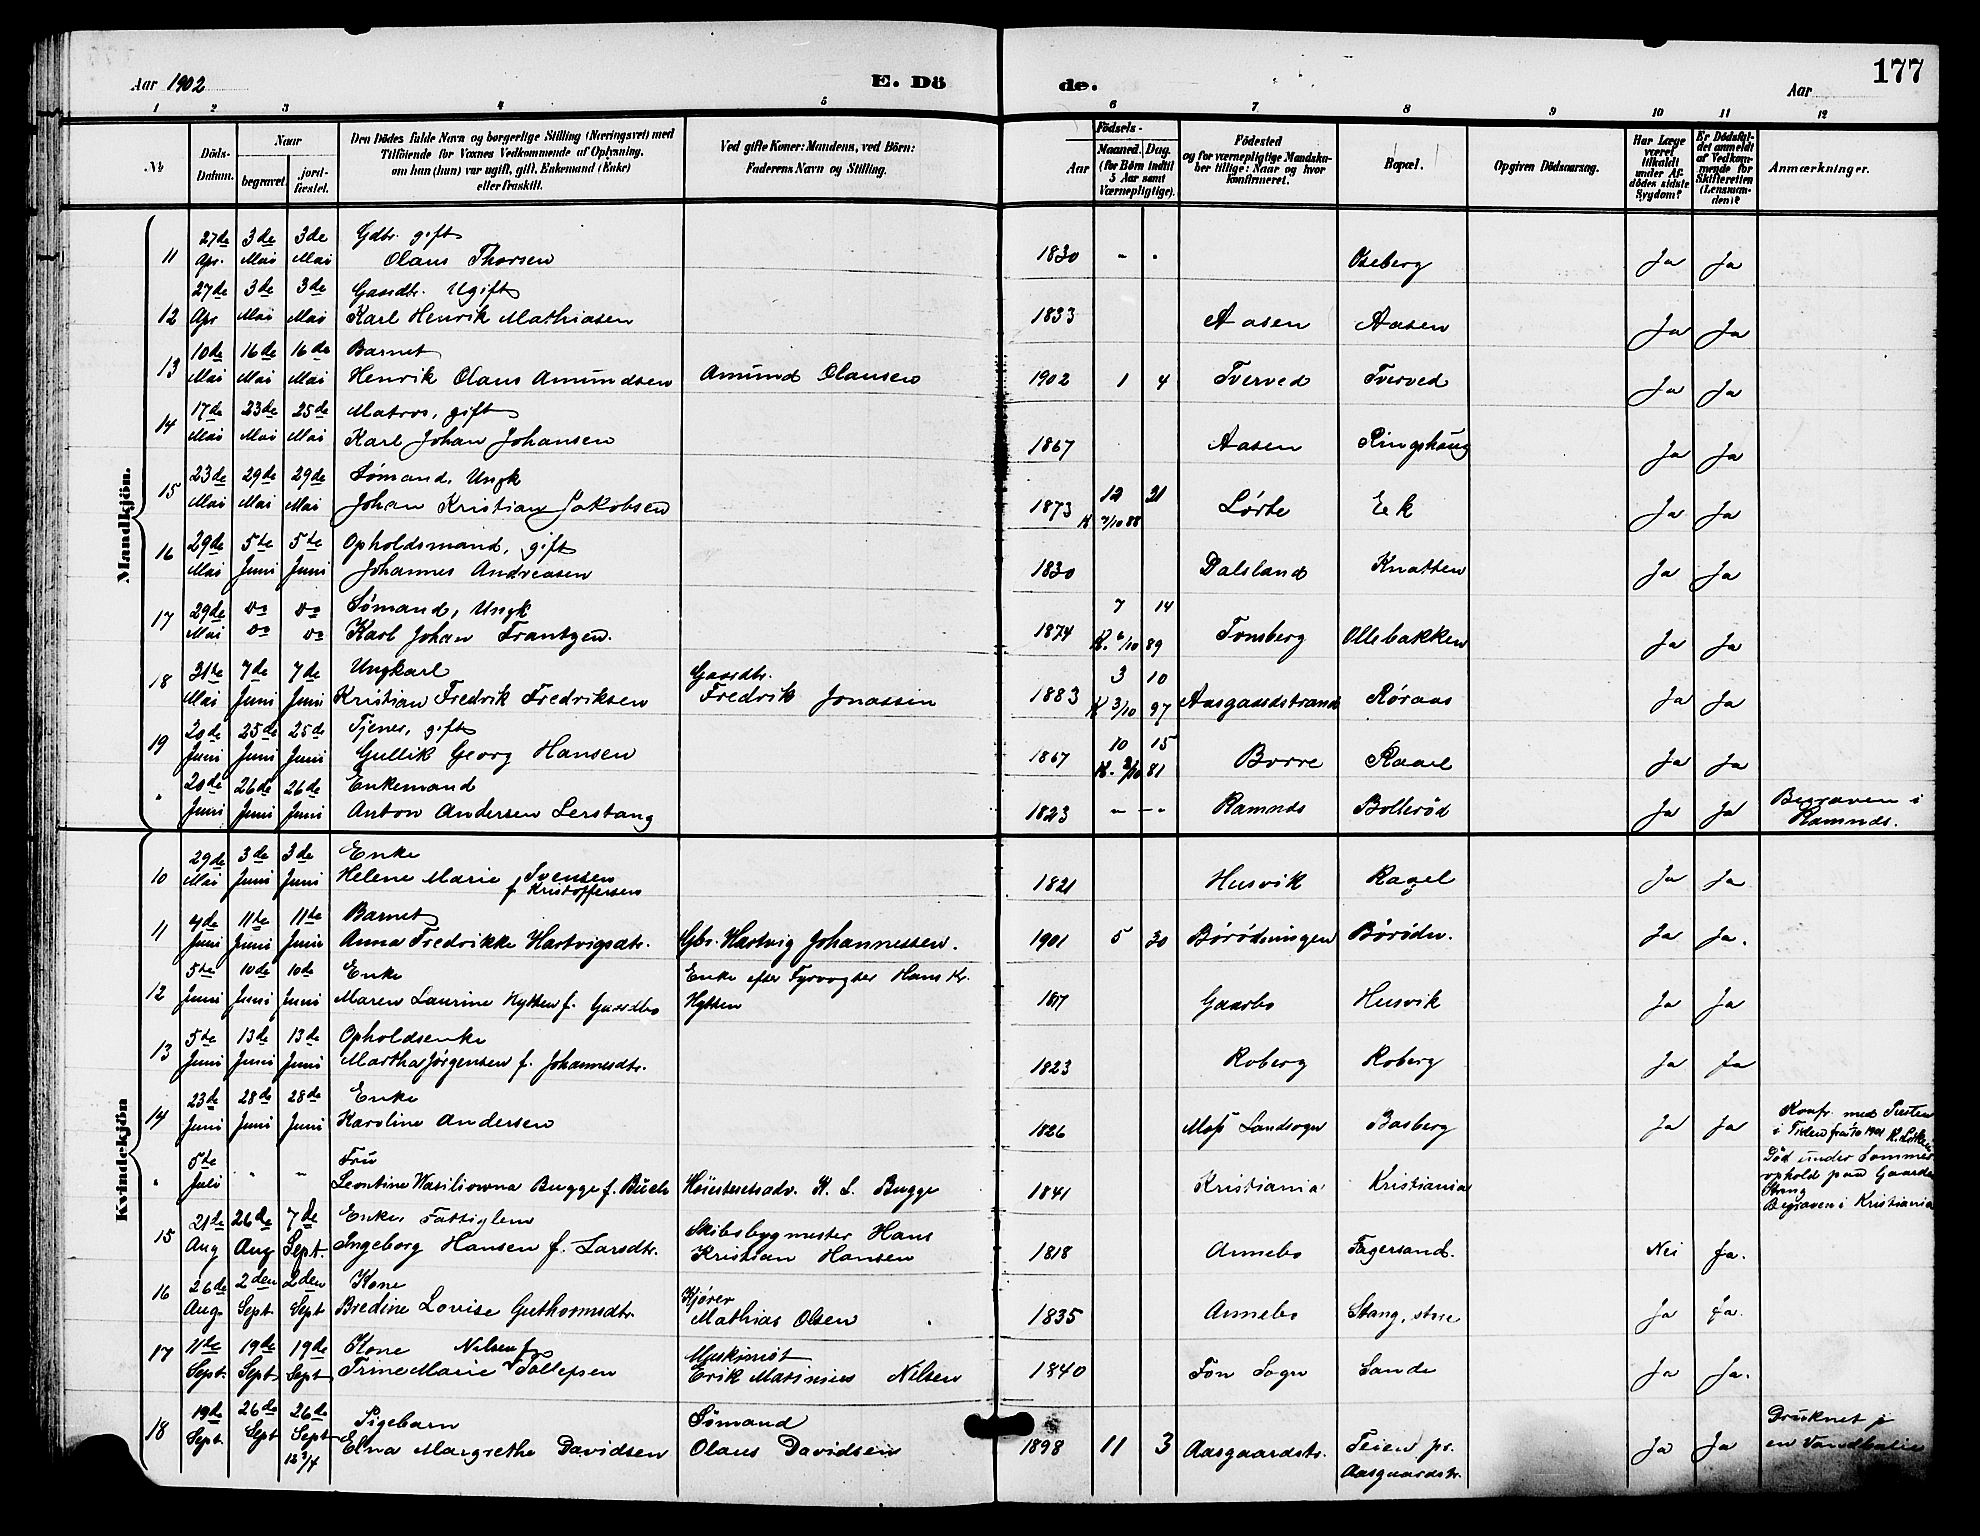 Aar 1902 E. Dö de. Aar 177
1 2 3 4 5 6 7 8 9 10 11 12
No Döds-Datum. Naar begravet. jord-fæstet. Den Dödes fulde Navn og borgerlige Stilling (Næringsvei) med Tilföiende for Voxnes Vedkommende af Oplysning, om han (hun) var ugift, gift, Enkemand (Enke) eller fraskilt. Ved gifte Koner: Mandens, ved Börn: Faderens Navn og Stilling. Födsels- Aar Maaned. Dag. (for Börn indtil 5 Aar samt Værnepligtige). Födested og for værnepligtige Mandskaber tillige: Naar og hvor konfirmeret. Bopæl. Opgiven Dödsaarsag. Har Læge været tilkaldt under Afdödes sidste Sygdom? Er Dödsfaldet anmeldt af Vedkommende for Skifteretten (Lensmanden)? Anmærkninger.
Mandkjön.
11 27de Apr. 3de Mai 3de Mai Gdbr. gift
Olaus Thorsen 1830 - - Oseberg Ja Ja
12 27de Apr 3de Mai 3de Mai Gaardbr. Ugift
Karl Henrik Mathiasen 1833 Aasen Aasen Ja Ja
13 10de Mai 16de Mai 16de Mai Barnet
Henrik Olaus Amundsen Amund Olausen 1902 1 4 Tverved Tverved Ja Ja
14 17de Mai 23de Mai 25de Mai Matros, gift
Karl Johan Johansen 1867 Aasen Ringshaug Ja Ja
15 23de Mai 29de Mai 29de Mai Sømand, Ungk
Johan Kristian Jakobsen 1873 12 21 K /10 88 Lørbe Eek Ja Ja
16 29de Mai 5te Juni 5te Juni Opholdsmand, gift
Johannes Andreasen 1830 Dalsland Knatten Ja Ja
17 29de Mai do do do do Sømand, Ungk
Karl Johan Frantzen. 1874 7 14 K. 6/10 89 Tønsberg Ollebakken Ja Ja
18 31te Mai 7de Juni 7de Juni Ungkarl
Kristian Fredrik Fredriksen Gaardbr. Fredrik Jonassen 1883 3 10 K 3/10 97 Aasgaardstrand Røraas Ja Ja
19 20de Juni 25de Juni 25de Juni Tjener, gift
Gullik Georg Hansen 1867 10 15 K. 2/10 81 Borre Raael Ja Ja
" 20de Juni 26de Juni 26de Juni Enkemand
Anton Andersen Lerstang 1823 - - - Ramnes Bollerød Ja Ja Begraven i
Ramnes.
Kvindekjön
10 29de Mai 3de Juni 3de Juni Enke
Helene Marie Svensen
f. Kristoffersen 1821 Husvik Ragel Ja Ja
11 4de Juni 11te Juni 11te Juni Barnet
Anna Fredrikke Hartvigsdtr. Gbr. Hartvig Johannessen. 1901 5 30 Børødningen Børødn. Ja Ja.
12 5te Juni 10de Juni 10de Juni Enke
Maren Laurine Hytten f. Gaardbo Enke efter Fyrvogter Hans Kr.
Hytten 1817 Gaarbo Husvik Ja Ja
13 5te Juni 13de Juni 13de Juni Opholdsenke
Martha Jørgensen f. Johannesdtr. 1823 Roberg Roberg Ja Ja
14 23de Juni 28de Juni 28de Juni Enke
Karoline Andersen 1826 Moss Landsogn Basberg Ja Ja Konfr. med Presten
i Tiden fra 1/10 1901
" 5te Juli " " Fru
Leontine Wasiliowna Bugge f. Büch Høiesteretsadv. K. L. Bugge 1841 Kristiania Kristiania Død under Sommer-
ophold paa Gaarden
Stang
Begraven i Kristiania
15 21de Aug 26de Aug 7de Sept. Enke Fattiglem
Ingeborg Hansen f. Larsdtr. Skibsbygmester Hans
Kristian Hansen 1818 Annebo Fagersand. Nei Ja.
16 26de Aug. 2den Sept 2den Sept Kone
Bredine Lovise Guthormsdtr. Kjører
Mathias Olsen 1835 Annebo Stang, store Ja Ja.
17 11te Sept. 19de Sept 19de Sept Kone Nilsen f.
Trine Marie Tollefsen Maskinist
Erik Marinius Nilsen 1840 Fon Sogn Sande Ja Ja.
18 19de Sept. 26de Sept 26de Sept 12 3/4 Pigebarn
Elna Margrethe Davidsen Sømand
Olaus Davidsen 1898 11 3 Aasgaardstr. Teien pr.
Aasgaardstr. Ja Ja Druknet i
en Vandbalie